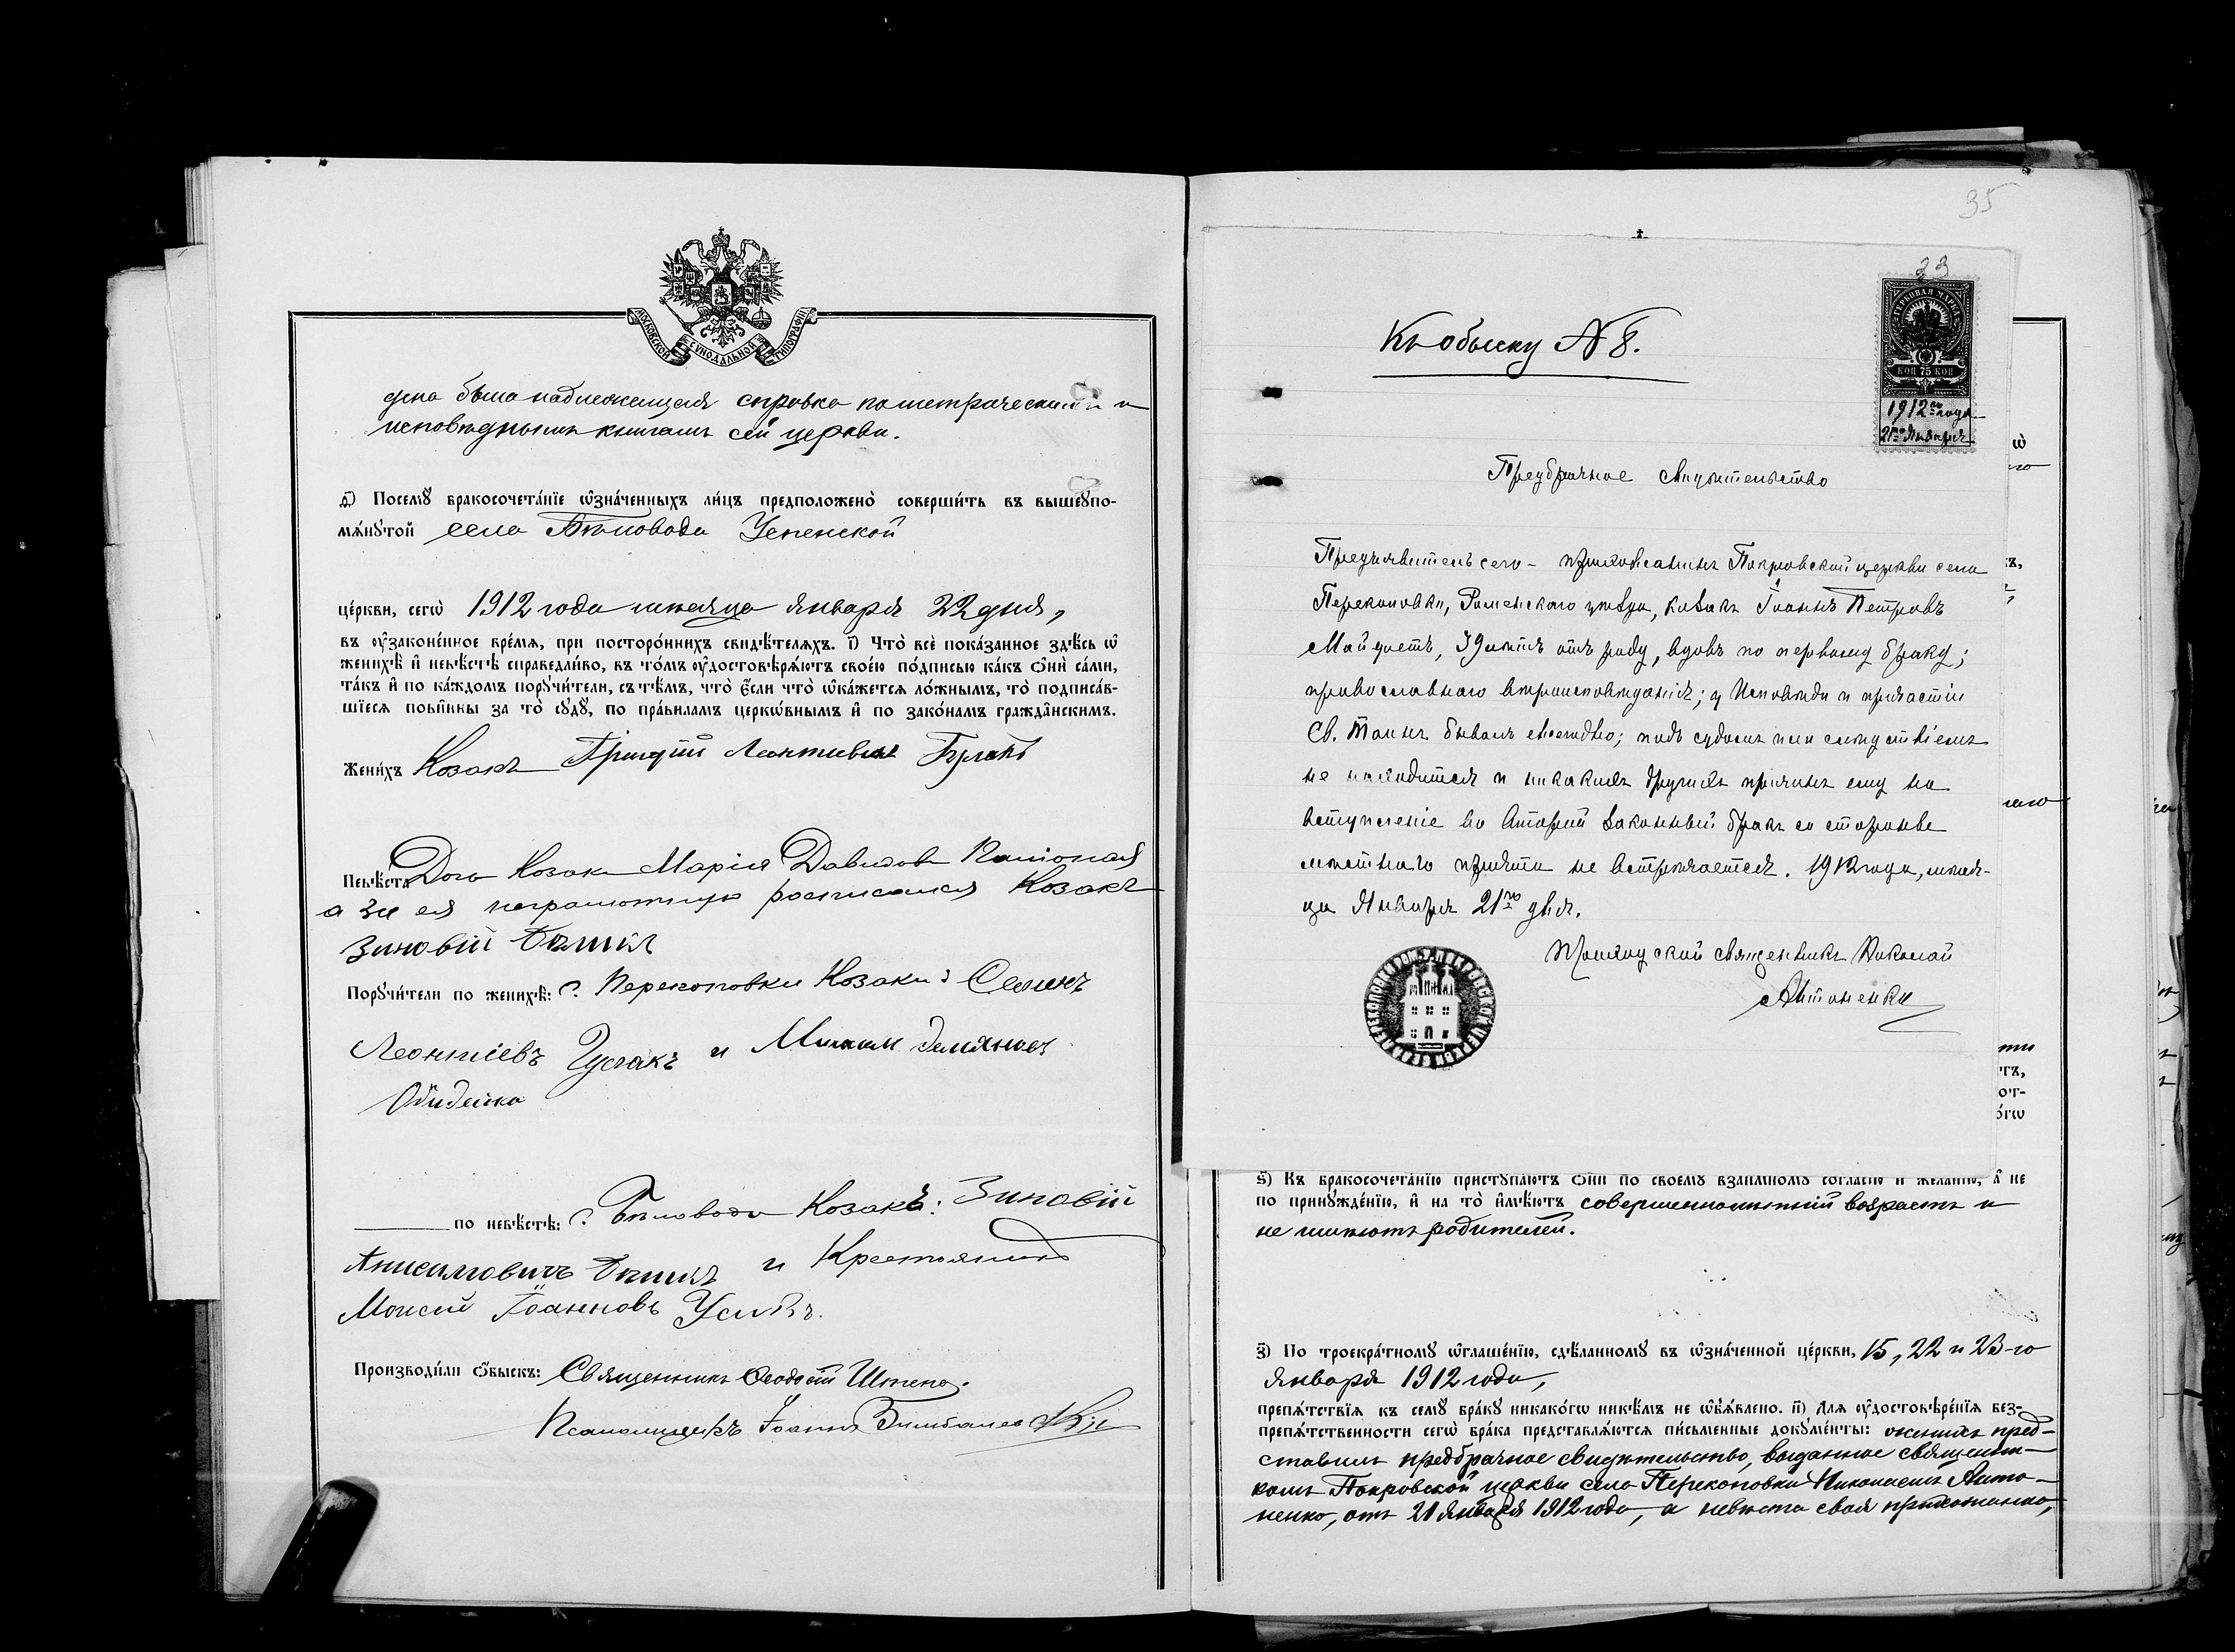 МОСКОВСКОЙ СѴНОДАЛЬНОЙ ТИПОГРАФІИ
дена была надлежащая справка по метрическимъ и
исповѣднымъ книгамъ сей церкви.
д҃) Посемꙋ̀ бракосочета́нїе ѡ҆зна́ченныхъ ли́цъ предположено̀ соверши́ть въ вышеꙋпо-
мѧ́нꙋтой села Бѣловода Успенской
це́ркви, сегѡ̀ 1912 года мѣсяца января 22 дня,
въ ᲂу҆зако́ненное вре́мѧ, при посторо́ннихъ свидѣ́телѧхъ. і҃) Что̀ всѐ пока́занное здѣ́сь ѡ҆
женихѣ̀ и҆ невѣ́стѣ справедли́во, въ то́мъ ᲂу҆достовѣрѧ́ютъ свое́ю по́дписью ка́къ ѻ҆нѝ са́ми,
та́къ и҆ по ка́ждомъ порꙋчи́тели, съ тѣ́мъ, что̀ є҆́сли что̀ ѡ҆ка́жетсѧ ло́жнымъ, то̀ подписа́в-
шїесѧ пови́нны за то̀ сꙋдꙋ̀, по пра́виламъ церко́внымъ и҆ по зако́намъ гражда́нскимъ.
Жени́хъ Козакъ Григорій Леонтиевъ
Невѣ́ста Дочь Козака Марія Давидова
а за ея неграмотную росписался Козакъ
Зиновій Бѣликъ
Порꙋчи́тели по женихѣ̀: с. Перекоповки Козаки: Семенъ
Леонтіевъ и Михаил Демяновъ
по невѣ́стѣ: с. Бѣловода Козакъ: Зиновій
Анисимовичъ Бѣликъ и Крестьянинъ
Моисей Іоанновъ Усикъ.
Производи́ли ѻ҆́быскъ: Священникъ Ѳеодосій
Псаломщикъ Іоаннъ
35
33
Къ обыску № 8.
ГЕРБОВАЯ МАРКА
КОП 75 КОП
1912го года
21го Января
Предбрачное Свидѣтельство
Предъявитель сего - прихожанинъ Покровской церкви села
Перекоповки, Роменскаго уѣзда, козакъ Іоаннъ Петровъ
39 лѣтъ отъ роду, вдовъ по первому браку;
православнаго вѣроисповѣданія; у Исповѣди и причастія
Св. Таинъ бывалъ ежегодно; подъ судомъ или слѣдствіемъ
не находится и никакихъ другихъ причинъ ему на
вступленіе во второй законный бракъ со стороны
мѣстнаго причта не встрѣчается. 1912 года, мѣся-
ца Января 21го дня.
Приходской священникъ Николай
Антоненко
ѕ҃) Къ бракосочета́нїю пристꙋпа́ютъ ѻ҆нѝ по своемꙋ̀ взаи́мномꙋ согла́сїю и҆ жела́нїю, а҆ не
по принꙋжде́нїю, и҆ на то̀ и҆мѣ́ютъ совершеннолѣтній возрастъ и
не имѣютъ родителей.
з҃) По троекра́тномꙋ ѡ҆глаше́нїю, сдѣ́ланномꙋ въ ѡ҆зна́ченной це́ркви, 15, 22 и 23-го
января 1912 года,
препѧ́тствїѧ къ семꙋ̀ бра́кꙋ никако́гѡ никѣ́мъ не ѡ҆б̾ѧ́влено. и҃) Длѧ ᲂу҆достовѣре́нїѧ без-
препѧ́тственности сегѡ̀ бра́ка представлѧ́ютсѧ пи́сьменные докꙋме́нты: женихъ пред-
ставилъ предбрачное свидѣтельство, выданное священни-
комъ Покровской церкви села Перекоповки Николаемъ Анто-
ненко, отъ 21 января 1912 года, а невѣста своя прихожанка,